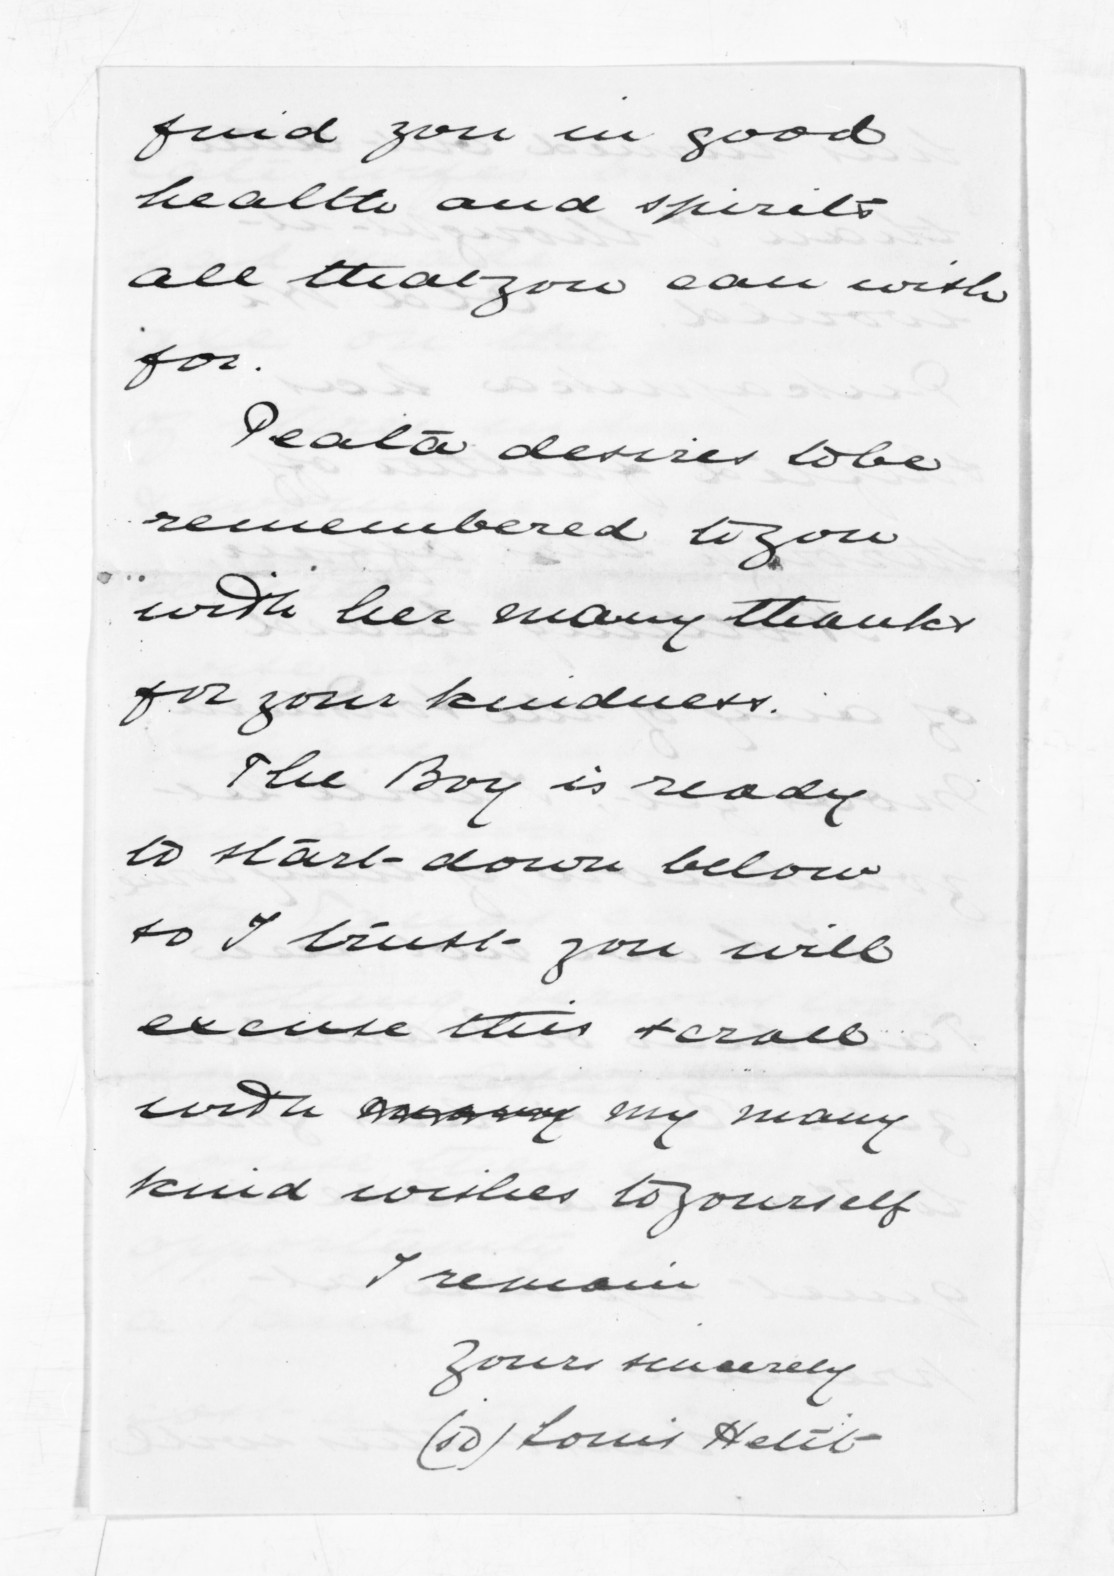 find you in good
health and spirits
all that you can wish
for.
Peata desires to be
remembered to you
with her many thanks
for your kindness.
The Boy is ready
to start down below
so I trust you will
excuse this scrall
with many my many
kind wishes to yourself
I remain
Yours sincerely
(sd) Louis Hetit